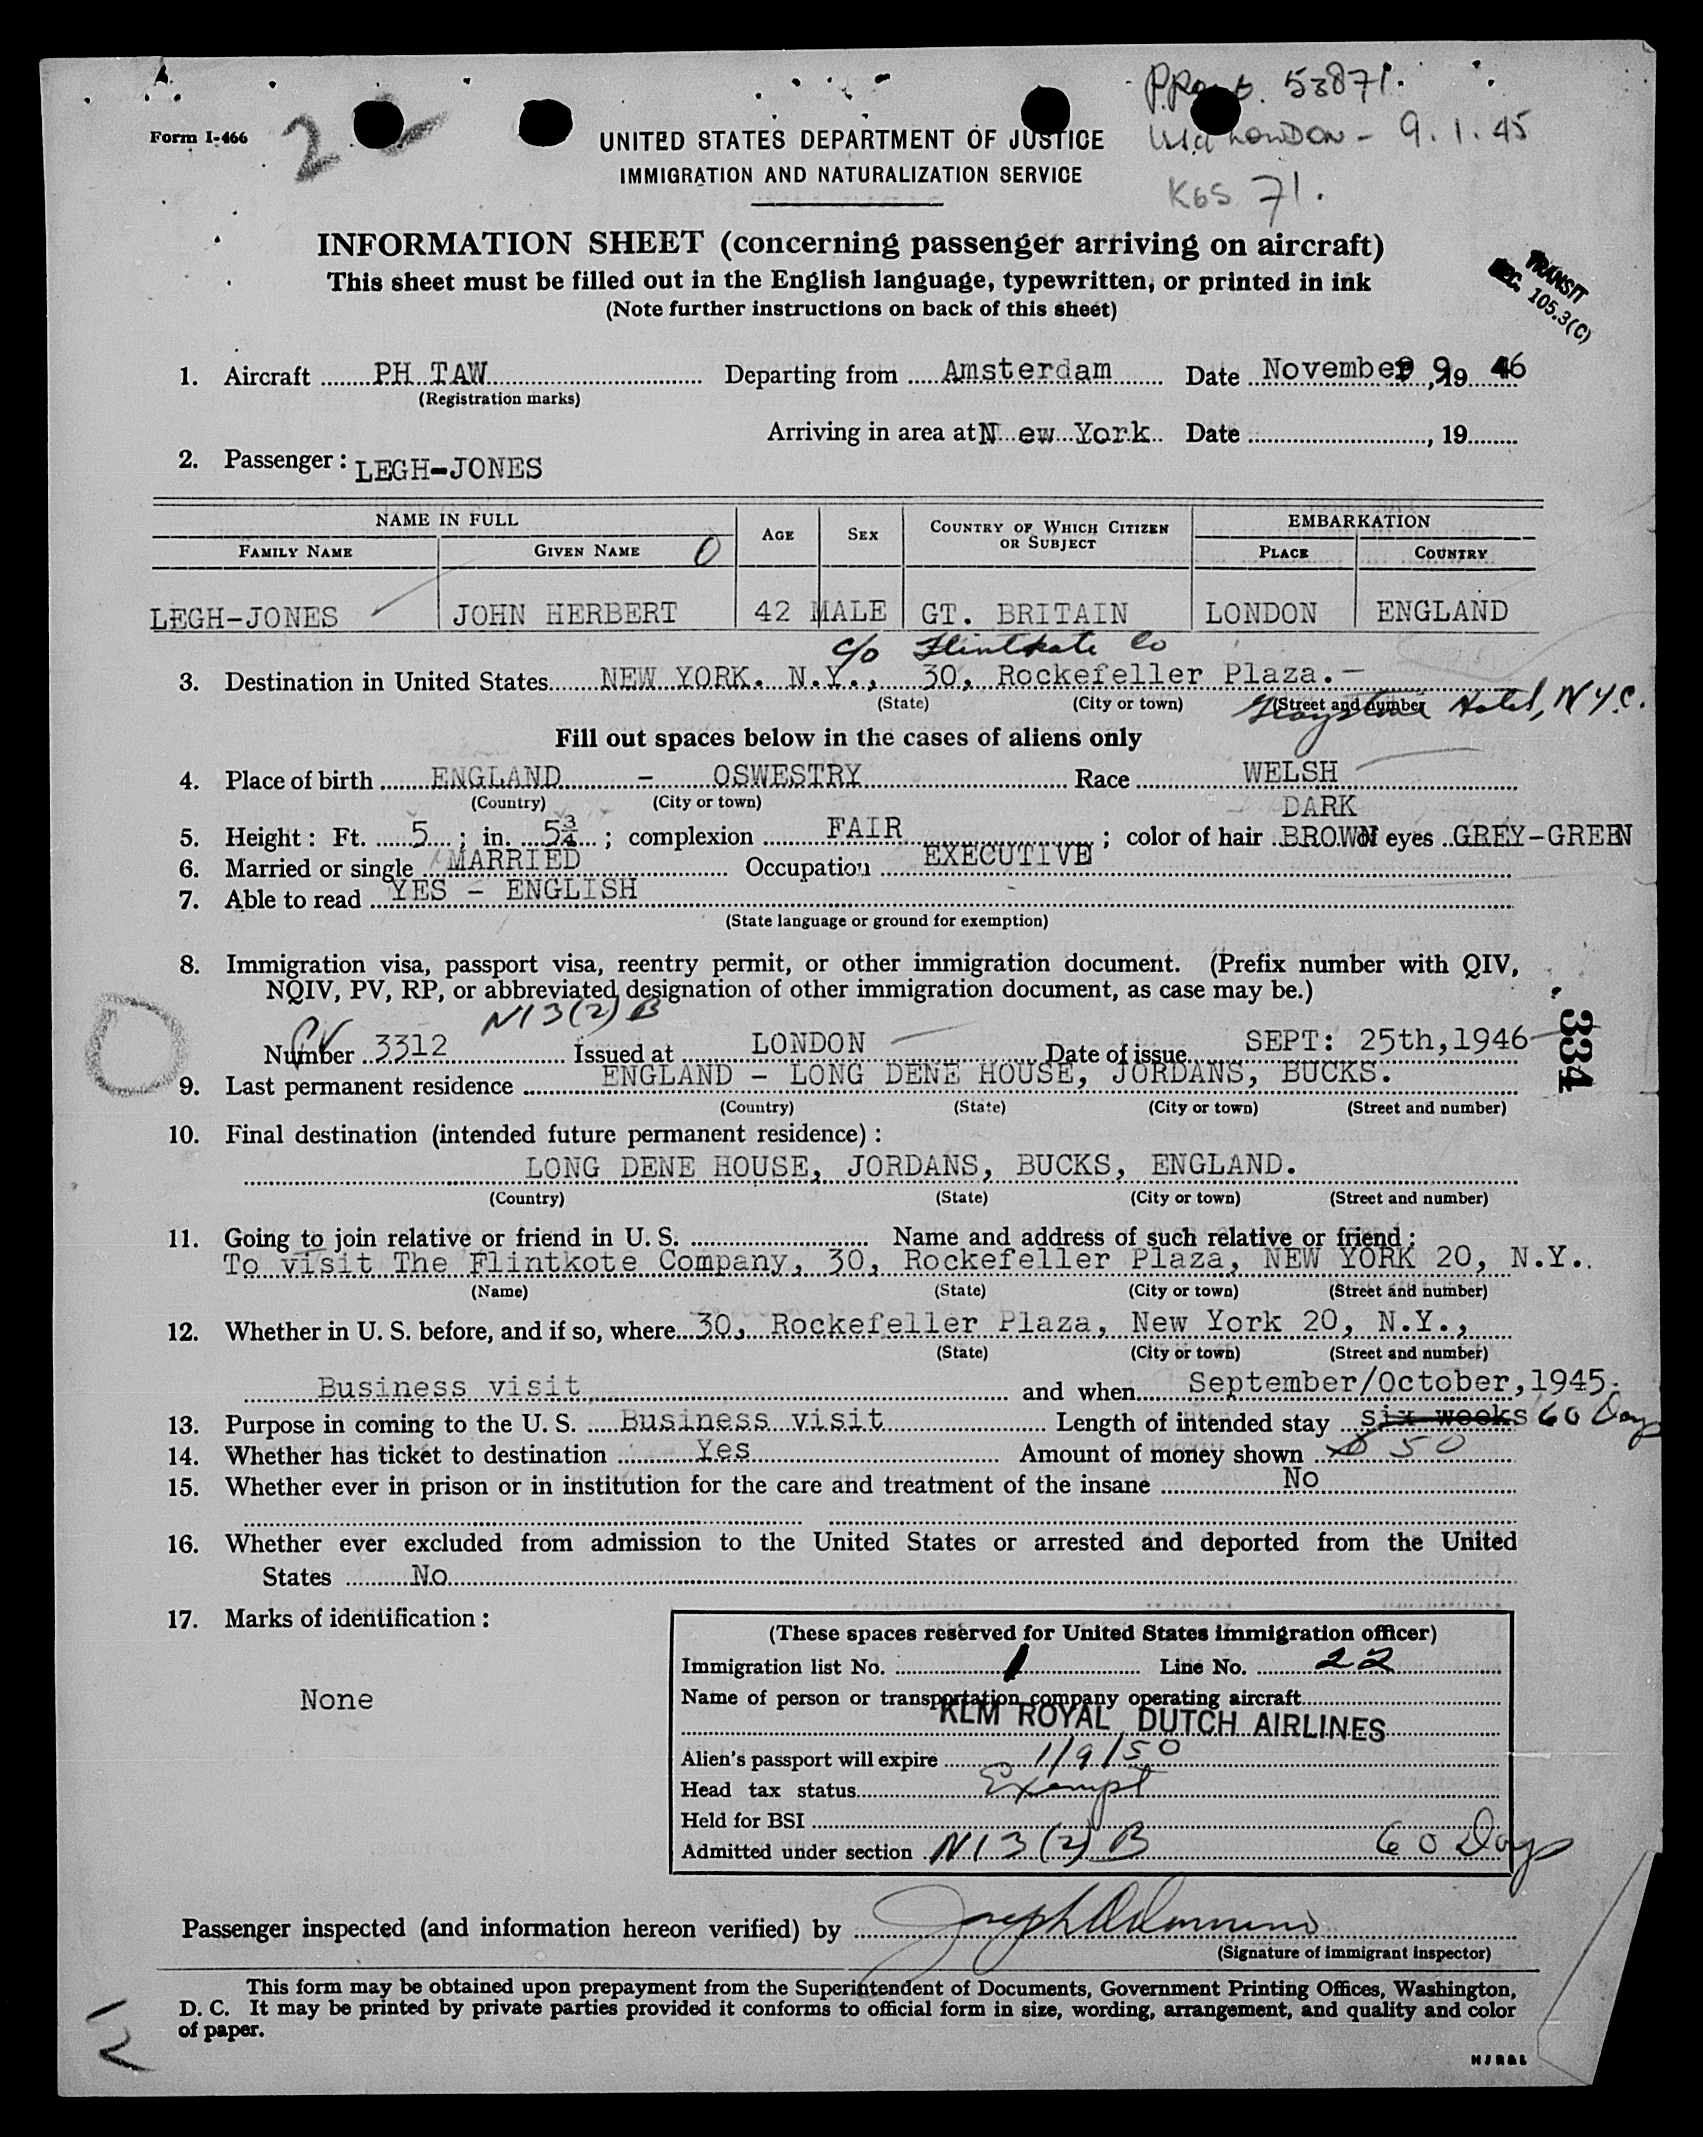 53871.
Form I-466
2
UNITED STATES DEPARTMENT OF JUSTICE
LONDON - 9.1.45
IMMIGRATION AND NATURALIZATION SERVICE
K6S 71.
INFORMATION SHEET (concerning passenger arriving on aircraft)
This sheet must be filled out in the English language, typewritten, or printed in ink
(Note further instructions on back of this sheet)
TRANSIT
SEC. 105.3(C)
1. Aircraft PH TAW Departing from Amsterdam Date November 9, 19 46
(Registration marks)
Arriving in area at N ew York Date , 19
2. Passenger: LEGH-JONES
NAME IN FULL AGE SEX COUNTRY OF WHICH CITIZEN OR SUBJECT EMBARKATION
FAMILY NAME GIVEN NAME 0 PLACE COUNTRY
LEGH-JONES JOHN HERBERT 42 MALE GT. BRITAIN LONDON ENGLAND
c/o Flintkate Co
3. Destination in United States NEW YORK. N.Y., 30, Rockefeller Plaza.-
(State) (City or town) (Street and number
Graystone Hotel, N.Y.C.
Fill out spaces below in the cases of aliens only
4. Place of birth ENGLAND - OSWESTRY Race WELSH
(Country) (City or town)
DARK
5. Height: Ft. 5 ; in. 5¾ ; complexion FAIR ; color of hair BROWN of eyes GREY-GREEN
6. Married or single MARRIED Occupation EXECUTIVE
7. Able to read YES - ENGLISH
(State language or ground for exemption)
8. Immigration visa, passport visa, reentry permit, or other immigration document. (Prefix number with QIV,
NQIV, PV, RP, or abbreviated designation of other immigration document, as case may be.)
NI 3(2) B
PV
Number 3312 Issued at LONDON Date of issue SEPT: 25th,1946
334
9. Last permanent residence ENGLAND - LONG DENE HOUSE, JORDANS, BUCKS.
(Country) (State) (City or town) (Street and number)
10. Final destination (intended future permanent residence):
LONG DENE HOUSE, JORDANS, BUCKS, ENGLAND.
(Country) (State) (City or town) (Street and number)
11. Going to join relative or friend in U. S. Name and address of such relative or friend:
To visit The Flintkote Company, 30, Rockefeller Plaza, NEW YORK 20, N.Y.
(Name) (State) (City or town) (Street and number)
12. Whether in U. S. before, and if so, where 30, Rockefeller Plaza, New York 20, N.Y.,
(State) (City or town) (Street and number)
Business visit and when September/October,1945.
13. Purpose in coming to the U. S. Business visit Length of intended stay six weeks 60 Days
14. Whether has ticket to destination Yes Amount of money shown $ 50
15. Whether ever in prison or in institution for the care and treatment of the insane No
16. Whether ever excluded from admission to the United States or arrested and deported from the United
States No
17. Marks of identification:
None
(These spaces reserved for United States immigration officer)
Immigration list No. 1 Line No. 22
Name of person or transportation company operating aircraft
KLM ROYAL DUTCH AIRLINES
Alien's passport will expire 1/9/50
Head tax status Exempt
Held for BSI
Admitted under section NI 3(2) B 60 Days
Passenger inspected (and information hereon verified) by
(Signature of immigrant inspector)
This form may be obtained upon prepayment from the Superintendent of Documents, Government Printing Offices, Washington,
D. C. It may be printed by private parties provided it conforms to official form in size, wording, arrangement, and quality and color
of paper.